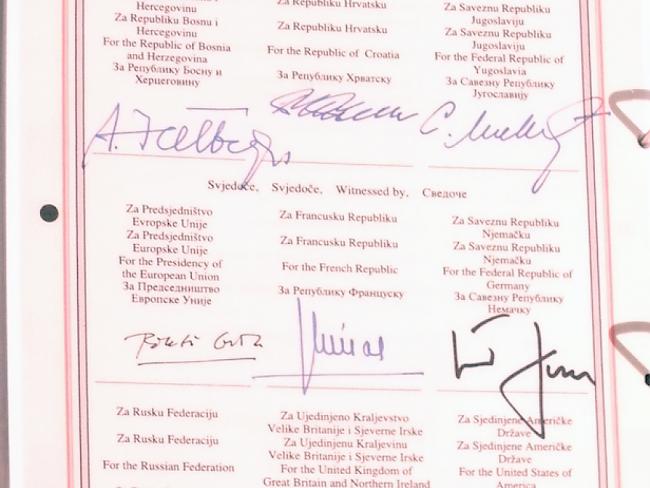 Hercegovinu
Za Republiku Bosnu i
Hercegovinu
For the Republic of Bosnia
and Herzegovina
За Републику Босну и
Херцеговину
Za Republiku Hrvatsku
Za Republiku Hrvatsku
For the Republic of Croatia
За Републику Хрватску
Za Saveznu Republiku
Jugoslaviju
Za Saveznu Republiku
Jugoslaviju
For the Federal Republic of
Yugoslavia
За Савезну Републику
Југославију
Svjedoče, Svjedoče, Witnessed by, Сведоче
Za Predsjedništvo
Evropske Unije
Za Predsjedništvo
Europske Unije
For the Presidency of
the European Union
За Председништво
Европске Уније
Za Francusku Republiku
Za Francusku Republiku
For the French Republic
За Републику Француску
Za Saveznu Republiku
Njemačku
Za Saveznu Republiku
Njemačku
For the Federal Republic of
Germany
За Савезну Републику
Немачку
Za Rusku Federaciju
Za Rusku Federaciju
For the Russian Federation
Za Ujedinjeno Kraljevstvo
Velike Britanije i Sjeverne Irske
Za Ujedinjenu Kraljevinu
Velike Britanije i Sjeverne Irske
For the United Kingdom of
Great Britain and Northern Ireland
Za Sjedinjene Američke
Države
Za Sjedinjene Američke
Države
For the United States of
America